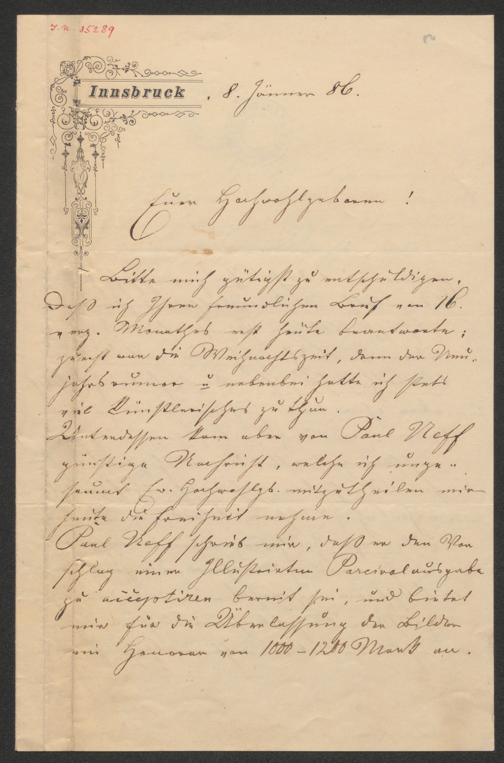 I.N. 15289
Innsbruck, 8. Jänner 86.
Euer Hochwohlgeboren!
Bitte mich gütigst zu entschuldigen,
daß ich Ihren freundlichen Brief vom 16.
vorg. Monathes erst heute beantworte;
zuerst war die Weihnachtszeit, dann der Neu-
jahrsrummer u nebenbei hatte ich stets
viel Künstlerisches zu thun.
Unterdessen kam aber von Paul Neff
günstige Nachricht, welche ich unge-
säumt Ew. Hochwohlgb. mitzutheilen mir
heute die Freiheit nehme.
Paul Neff schrieb mir, daß er den Vor
schlag einer Illustrirten Parcivalausgabe
zu acceptiren bereit sei, und bietet
mir für die Überlassung der Bilder
ein Honorar von 1000 – 1200 Mark an.